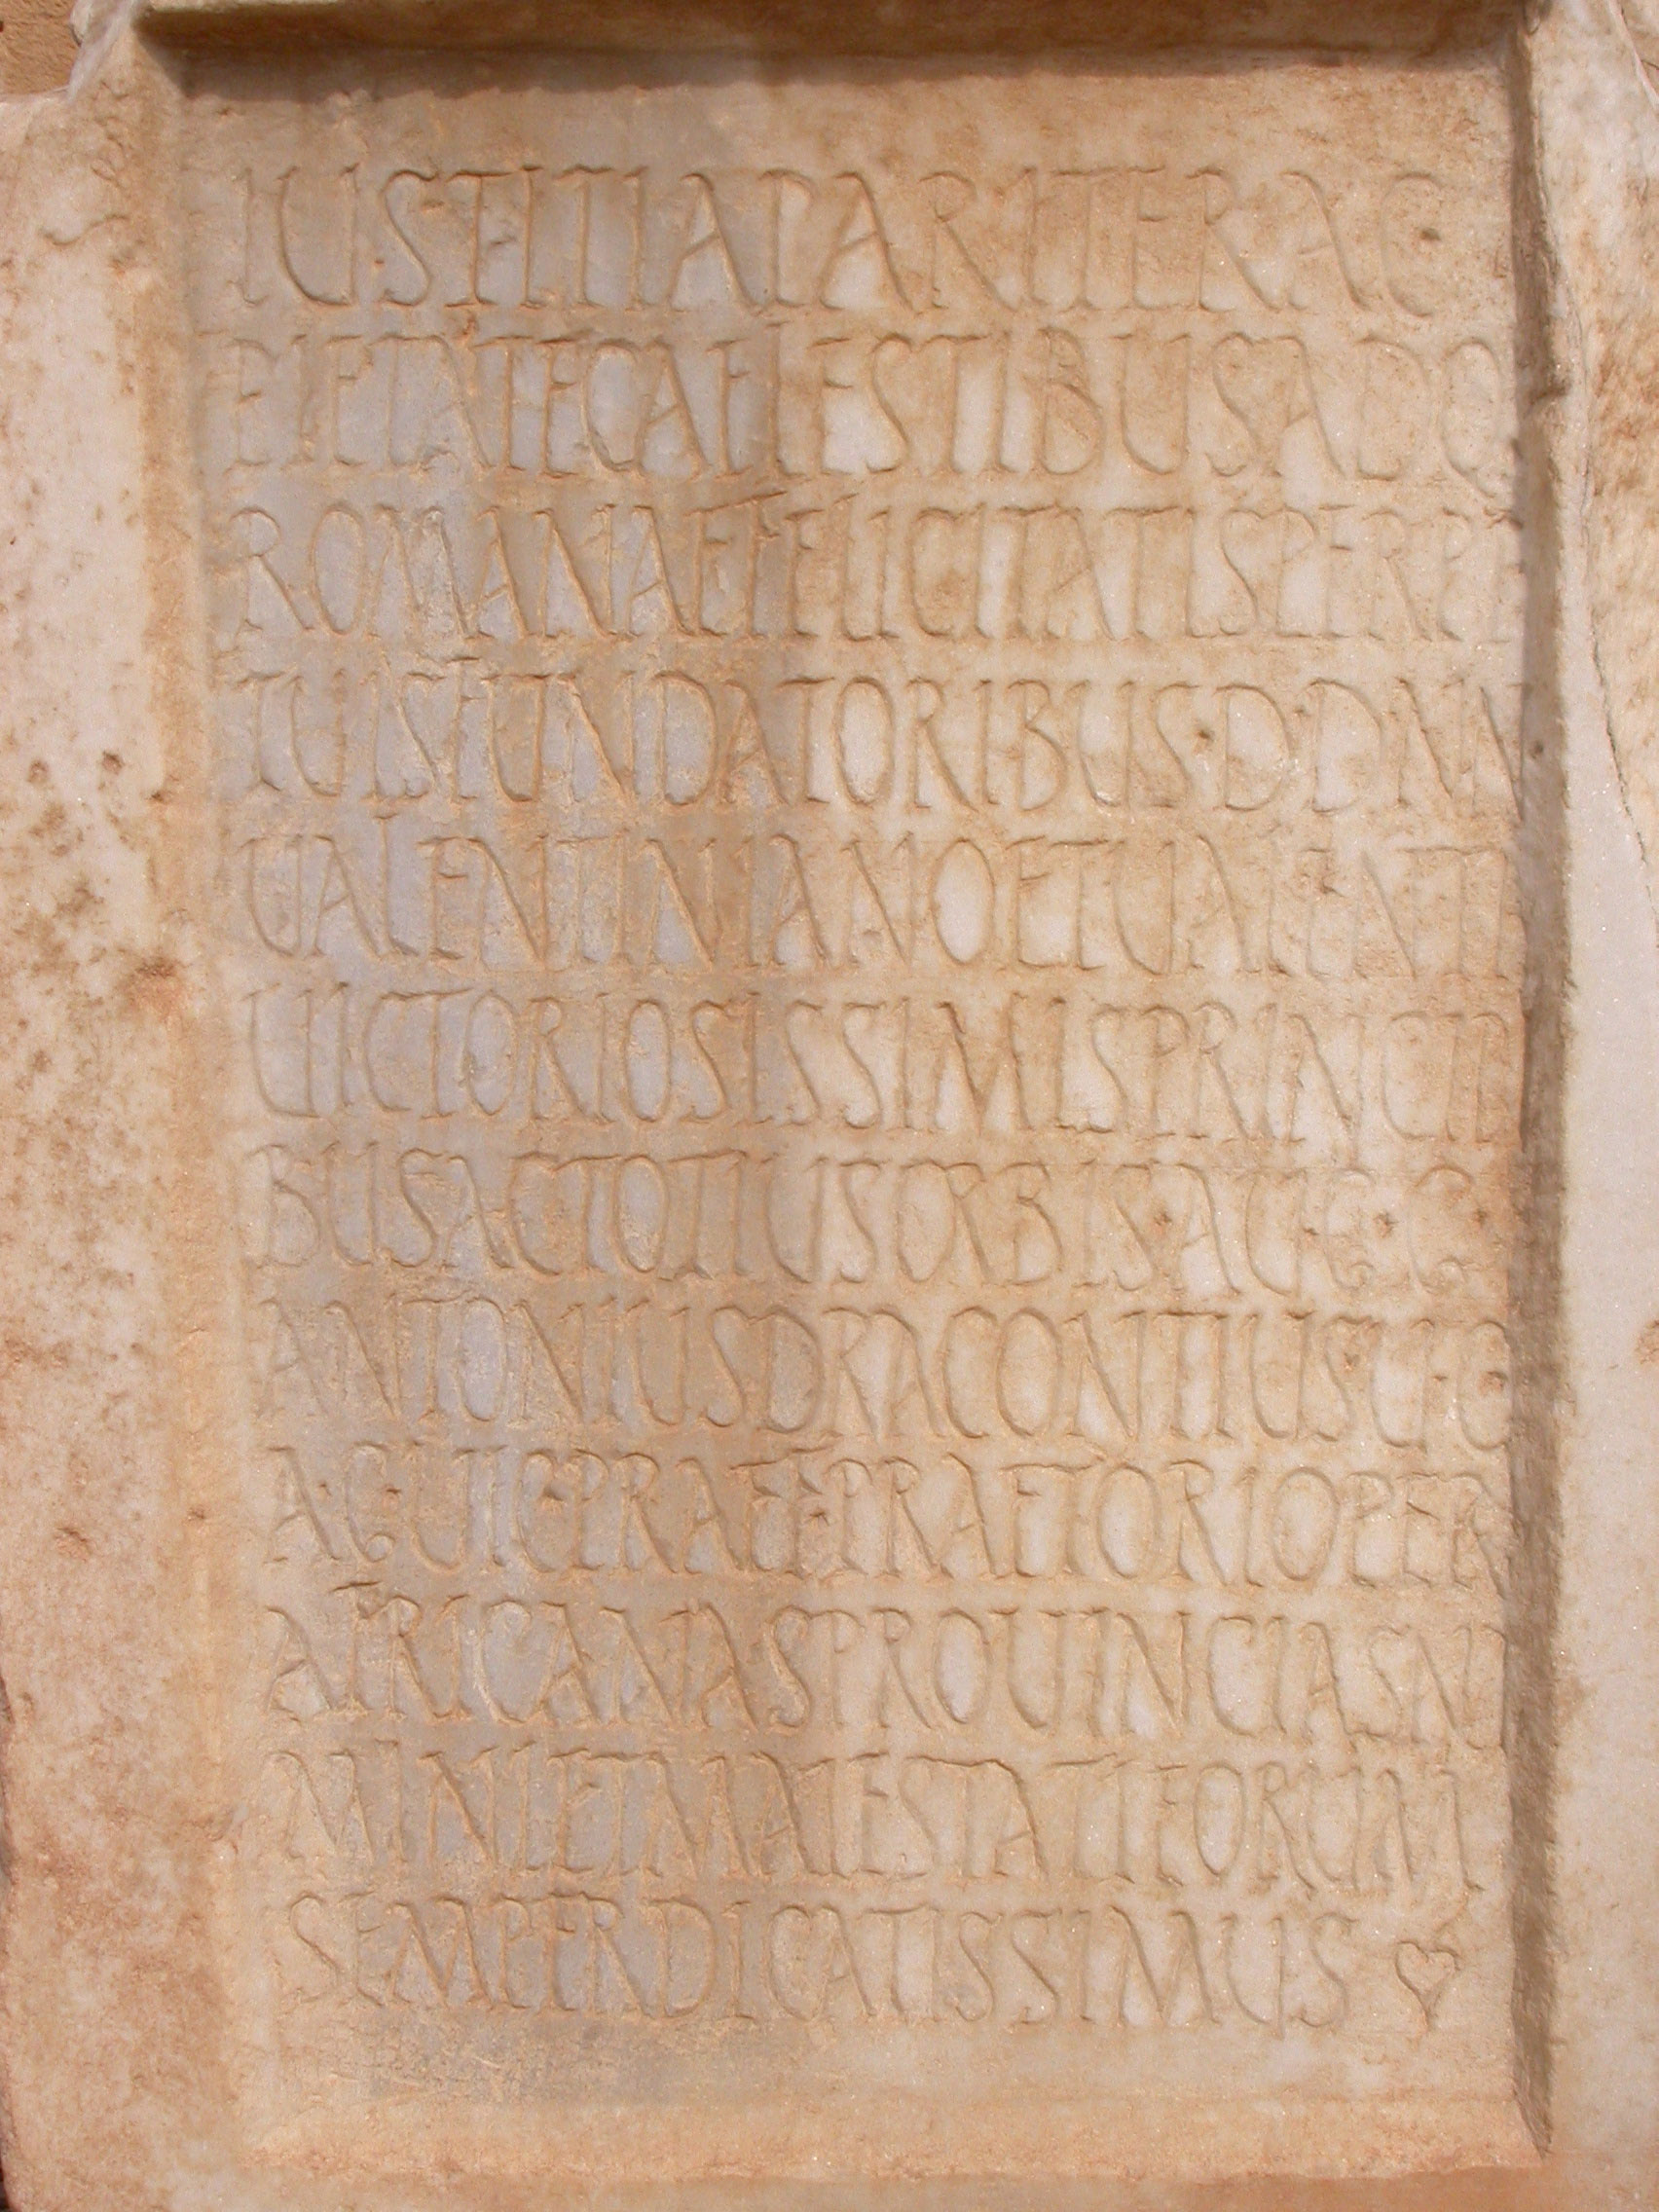 IUSTITIA PARITER AC
PIETATE CAELESTIBUS ADQ
ROMANAE FELICITATIS PERPE
TUIS FUNDATORIBUS · DDNN
UALENTINIANO ET UALENTI
UICTORIOSISSIMIS PRINCIPI
BUS AC TOTIUS ORBIS · AUGG ·
ANTONIUS DRACONTIUS U · C ·
AG · UIC · PRAEFF · PRAETORIO PER
AFRICANAS PROUINCIAS NU
MINI ET MAIESTATI EORUM
SEMPER DICATISSIMUS ❦